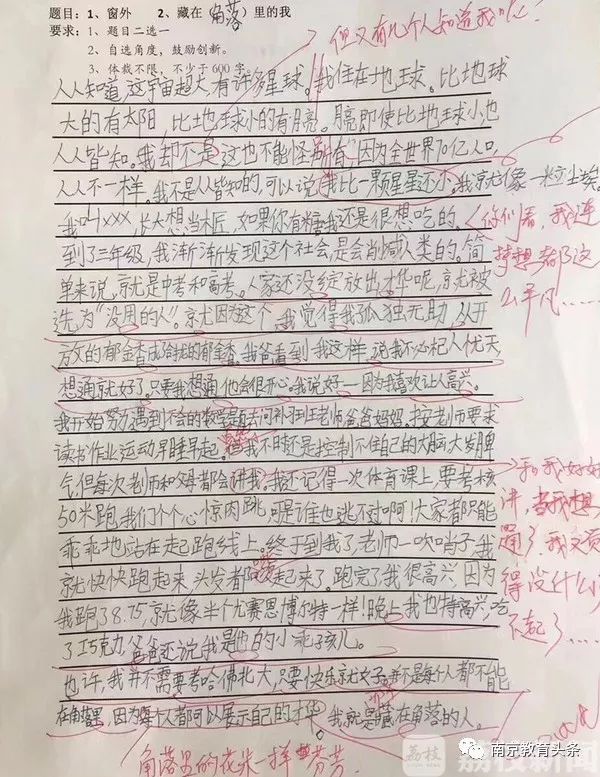 题目：1、窗外　2、藏在（角落）里的我
要求：1、题目二选一
但又有几个人知道我呢！
2、自选角度，鼓励创新。
3、体裁不限，不少于600字
人人知道，这宇宙超大，有许多星球。我住在地球。比地球
大的有太阳，比地球小的有月亮。月亮即使比地球小，也
人人皆知。我却不是，这也不能怪所有，因为全世界70亿人口，
人人不一样。我不是人皆知的，可以说我比一颗星星还小，我就像一粒尘埃。
我叫xxx，长大想当木匠，如果你有糖我还是很想吃的。
（你们看，我连梦想都这么平凡……
到了三年级，我渐渐发现这个社会，是会削减人类的。简
单来说，就是中考和高考。人家还没绽放出才华呢，就被
选为“没用的人”。就因为这个，我觉得我孤独无助，从开
放的郁金香成给我的郁金香。我爸看到我这样，说我不必杞人忧天，
想通就好了。只要我想通，他会很开心。我说好—因为我喜欢让人高兴。
我开始努力，遇到不会的数学题去问补习班老师、爸爸妈妈。按老师要求
读书作业运动早睡早起。但我不时还是控制不住自己的大脑大发脾
气，但每次老师和父母都会讲我。我还记得一次体育课上，要考核
和我好好讲，当我想通了，我又觉得没什么了不起了……
50米跑，我们个个心惊肉跳，可是谁也逃不对啊！大家都只能
乖乖地站在起跑线上。终于到我了，老师一吹哨子，我
就快快跑起来，头发都　起来了。跑完了，我很高兴，因为
我跑了8.75，就像半个尤赛恩博尔特一样！晚上我也特高兴，吃
了巧克力，爸爸还说我是他的小乖孩儿。
也许，我并不需要考哈佛北大，只要快乐就好了。并不是每个人都不能
在角落里，因为每个人都可以展示自己的才华。我就是藏在角落的人。
角落里的花米一样芬芳
荔枝
荔枝新闻
南京教育头条